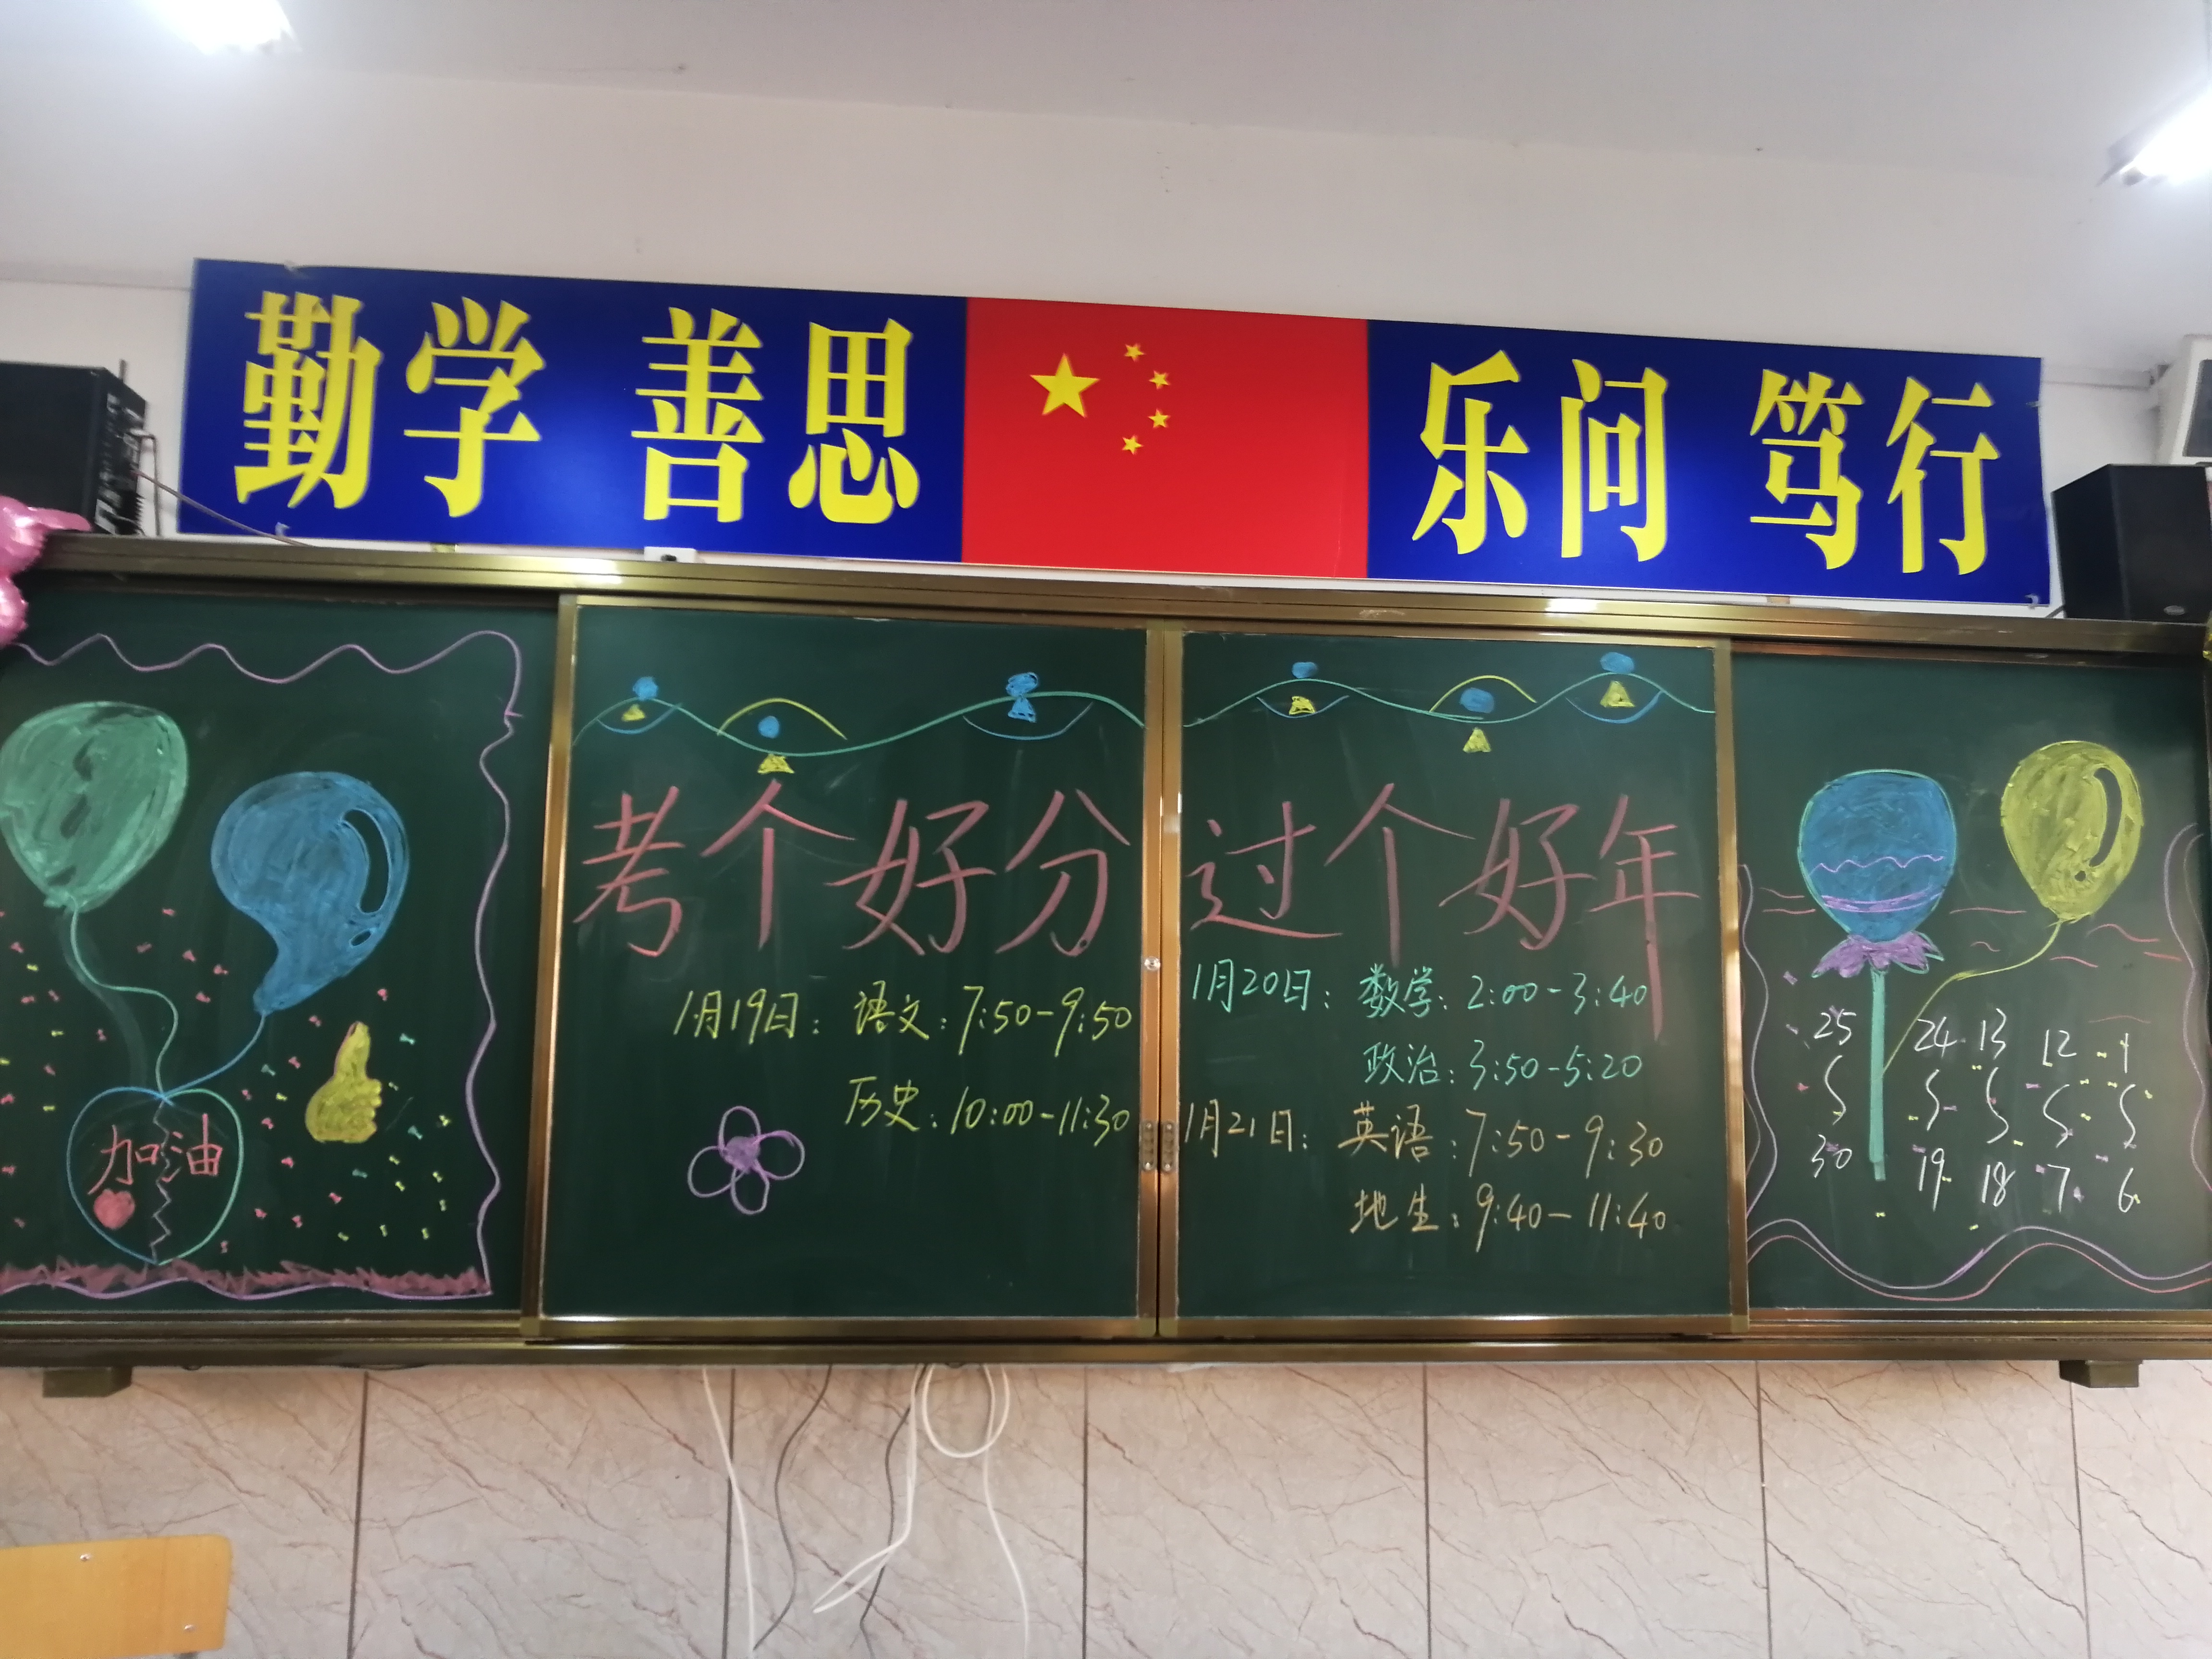 勤学 善思 乐问 笃行
加油
考个好分 过个好年
1月19日：语文：7:50-9:50
历史：10:00-11:30
1月20日：数学：2:00-3:40
政治：3:50-5:20
1月21日：英语：7:50-9:30
地生：9:40-11:40
25 24 13 12 1
~ ~ ~ ~ ~
30 19 18 7 6